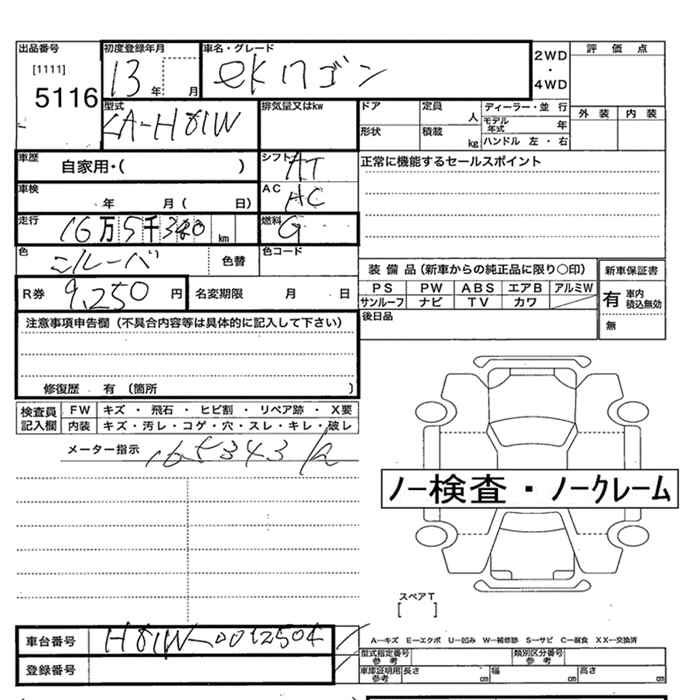 出品番号 初度登録年月 車名・グレード 2WD ・ 4WD 評価点
[1111] 13 年 月 eKワゴン
5116
型式 排気量又はkw ドア 定員 人 ディーラー・並行 外装 内装
LA-H81W 形状 積載 kg モデル年式 年
ハンドル 左・右
車歴 自家用・( ) シフト AT 正常に機能するセールスポイント
車検 年 月( 日) AC AC
走行 16万5千340 km 燃料 G
色 シルーバ 色替 色コード
装備品(新車からの純正品に限り○印) 新車保証書
R券 9,250 円 名変期限 月 日 PS PW ABS エアB アルミW 有 車内積込無効
サンルーフ ナビ TV カワ 無
注意事項申告欄(不具合内容等は具体的に記入して下さい) 後日品
修復歴・有(箇所 )
検査員記入欄 FW キズ・飛石・ヒビ割・リペア跡・X要
内装 キズ・汚レ・コゲ・穴・スレ・キレ・破レ
メーター指示 165343
ノー検査・ノークレーム
スペアT
[ ]
車台番号 H81W-0012504 A−キズ E−エクボ U−凹み W−補修跡 S−サビ C−腐食 XX−交換済
型式指定番号 参考 類別区分番号 参考
登録番号 車庫証明用 参考 長さ cm 幅 cm 高さ cm